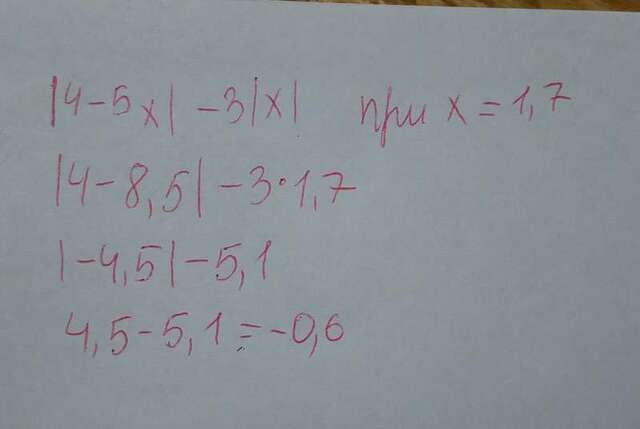 |4-5x| -3|x| при x=1,7
|4-8,5|-3·1,7
|-4,5|-5,1
4,5-5,1=-0,6